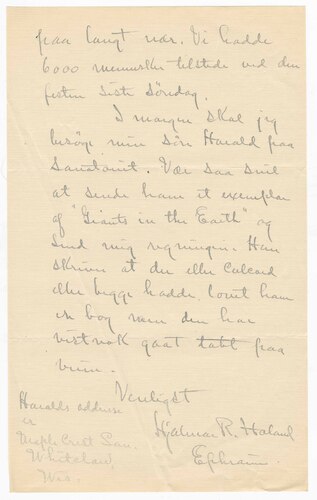 paa langt nær. Vi hadde
6000 mennesker tilstede ved den
festen siste Söndag.
I morgen skal jeg
besöge min sön Harald paa
Sanatoriet. Vær saa snil
at sende ham et exemplar
af "Giants in the Earth" og
send mig regningen. Han
skriver at du eller Calcord
eller begge hadde lovet ham
en bog men den har
vistnok gaat tabt paa
veien.
Venligst
Hjalmar R. Holand
Ephraim.
Haralds address
er
Maple Crest San.
Whitelaw,
Wis.